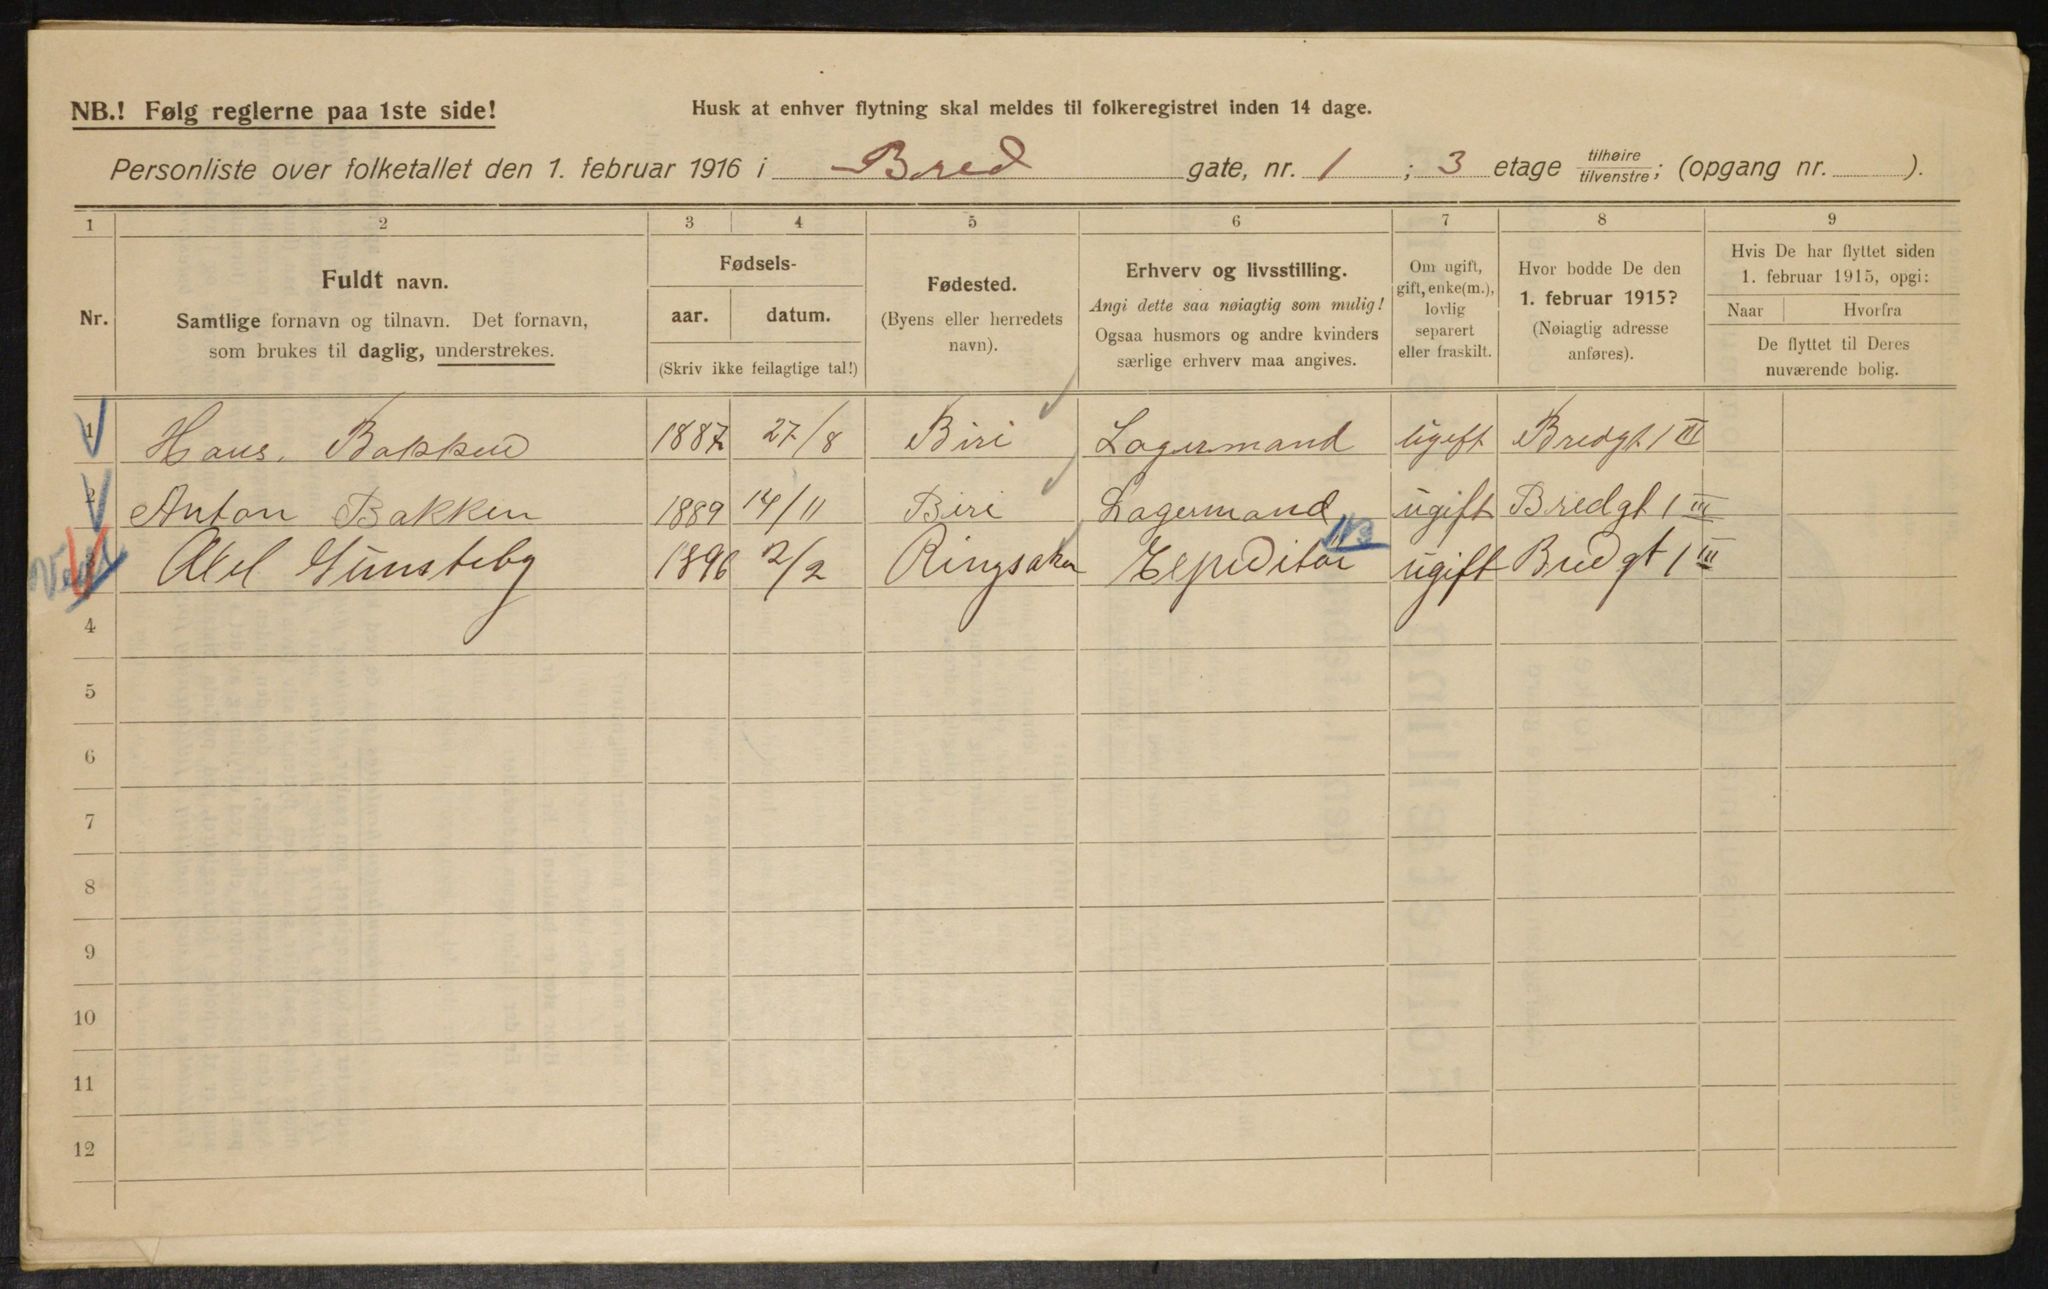 NB.! Følg reglerne paa 1ste side!
Husk at enhver flytning skal meldes til folkeregistret inden 14 dage.
Personliste over folketallet den 1. februar 1916 i Bred gate, nr. 1 ; 3 etage tilhøire tilvenstre; (opgang nr. ).
1 2 3 4 5 6 7 8 9
Nr.
Fuldt navn.
Samtlige fornavn og tilnavn. Det fornavn,
som brukes til daglig, understrekes.
Fødsels-
aar. datum.
(Skriv ikke feilagtige tal!)
Fødested.
(Byens eller herredets
navn).
Erhverv og livsstilling.
Angi dette saa nøiagtig som mulig!
Ogsaa husmors og andre kvinders
særlige erhverv maa angives.
Om ugift,
gift, enke(m.),
lovlig
separert
eller fraskilt.
Hvor bodde De den
1. februar 1915?
(Nøiagtig adresse
anføres).
Hvis De har flyttet siden
1. februar 1915, opgi:
Naar Hvorfra
De flyttet til Deres
nuværende bolig.
1 Hans. Bakken 1887 27/8 Biri Lagermand ugift Bredgt 1 III
2 Anton Bakken 1889 14/11 Biri Lagermand ugift Bredgt 1 III
3 Axel Gunsteby 1896 2/2 Ringsaker Expeditør ugift Bredgt 1 III
4
5
6
7
8
9
10
11
12